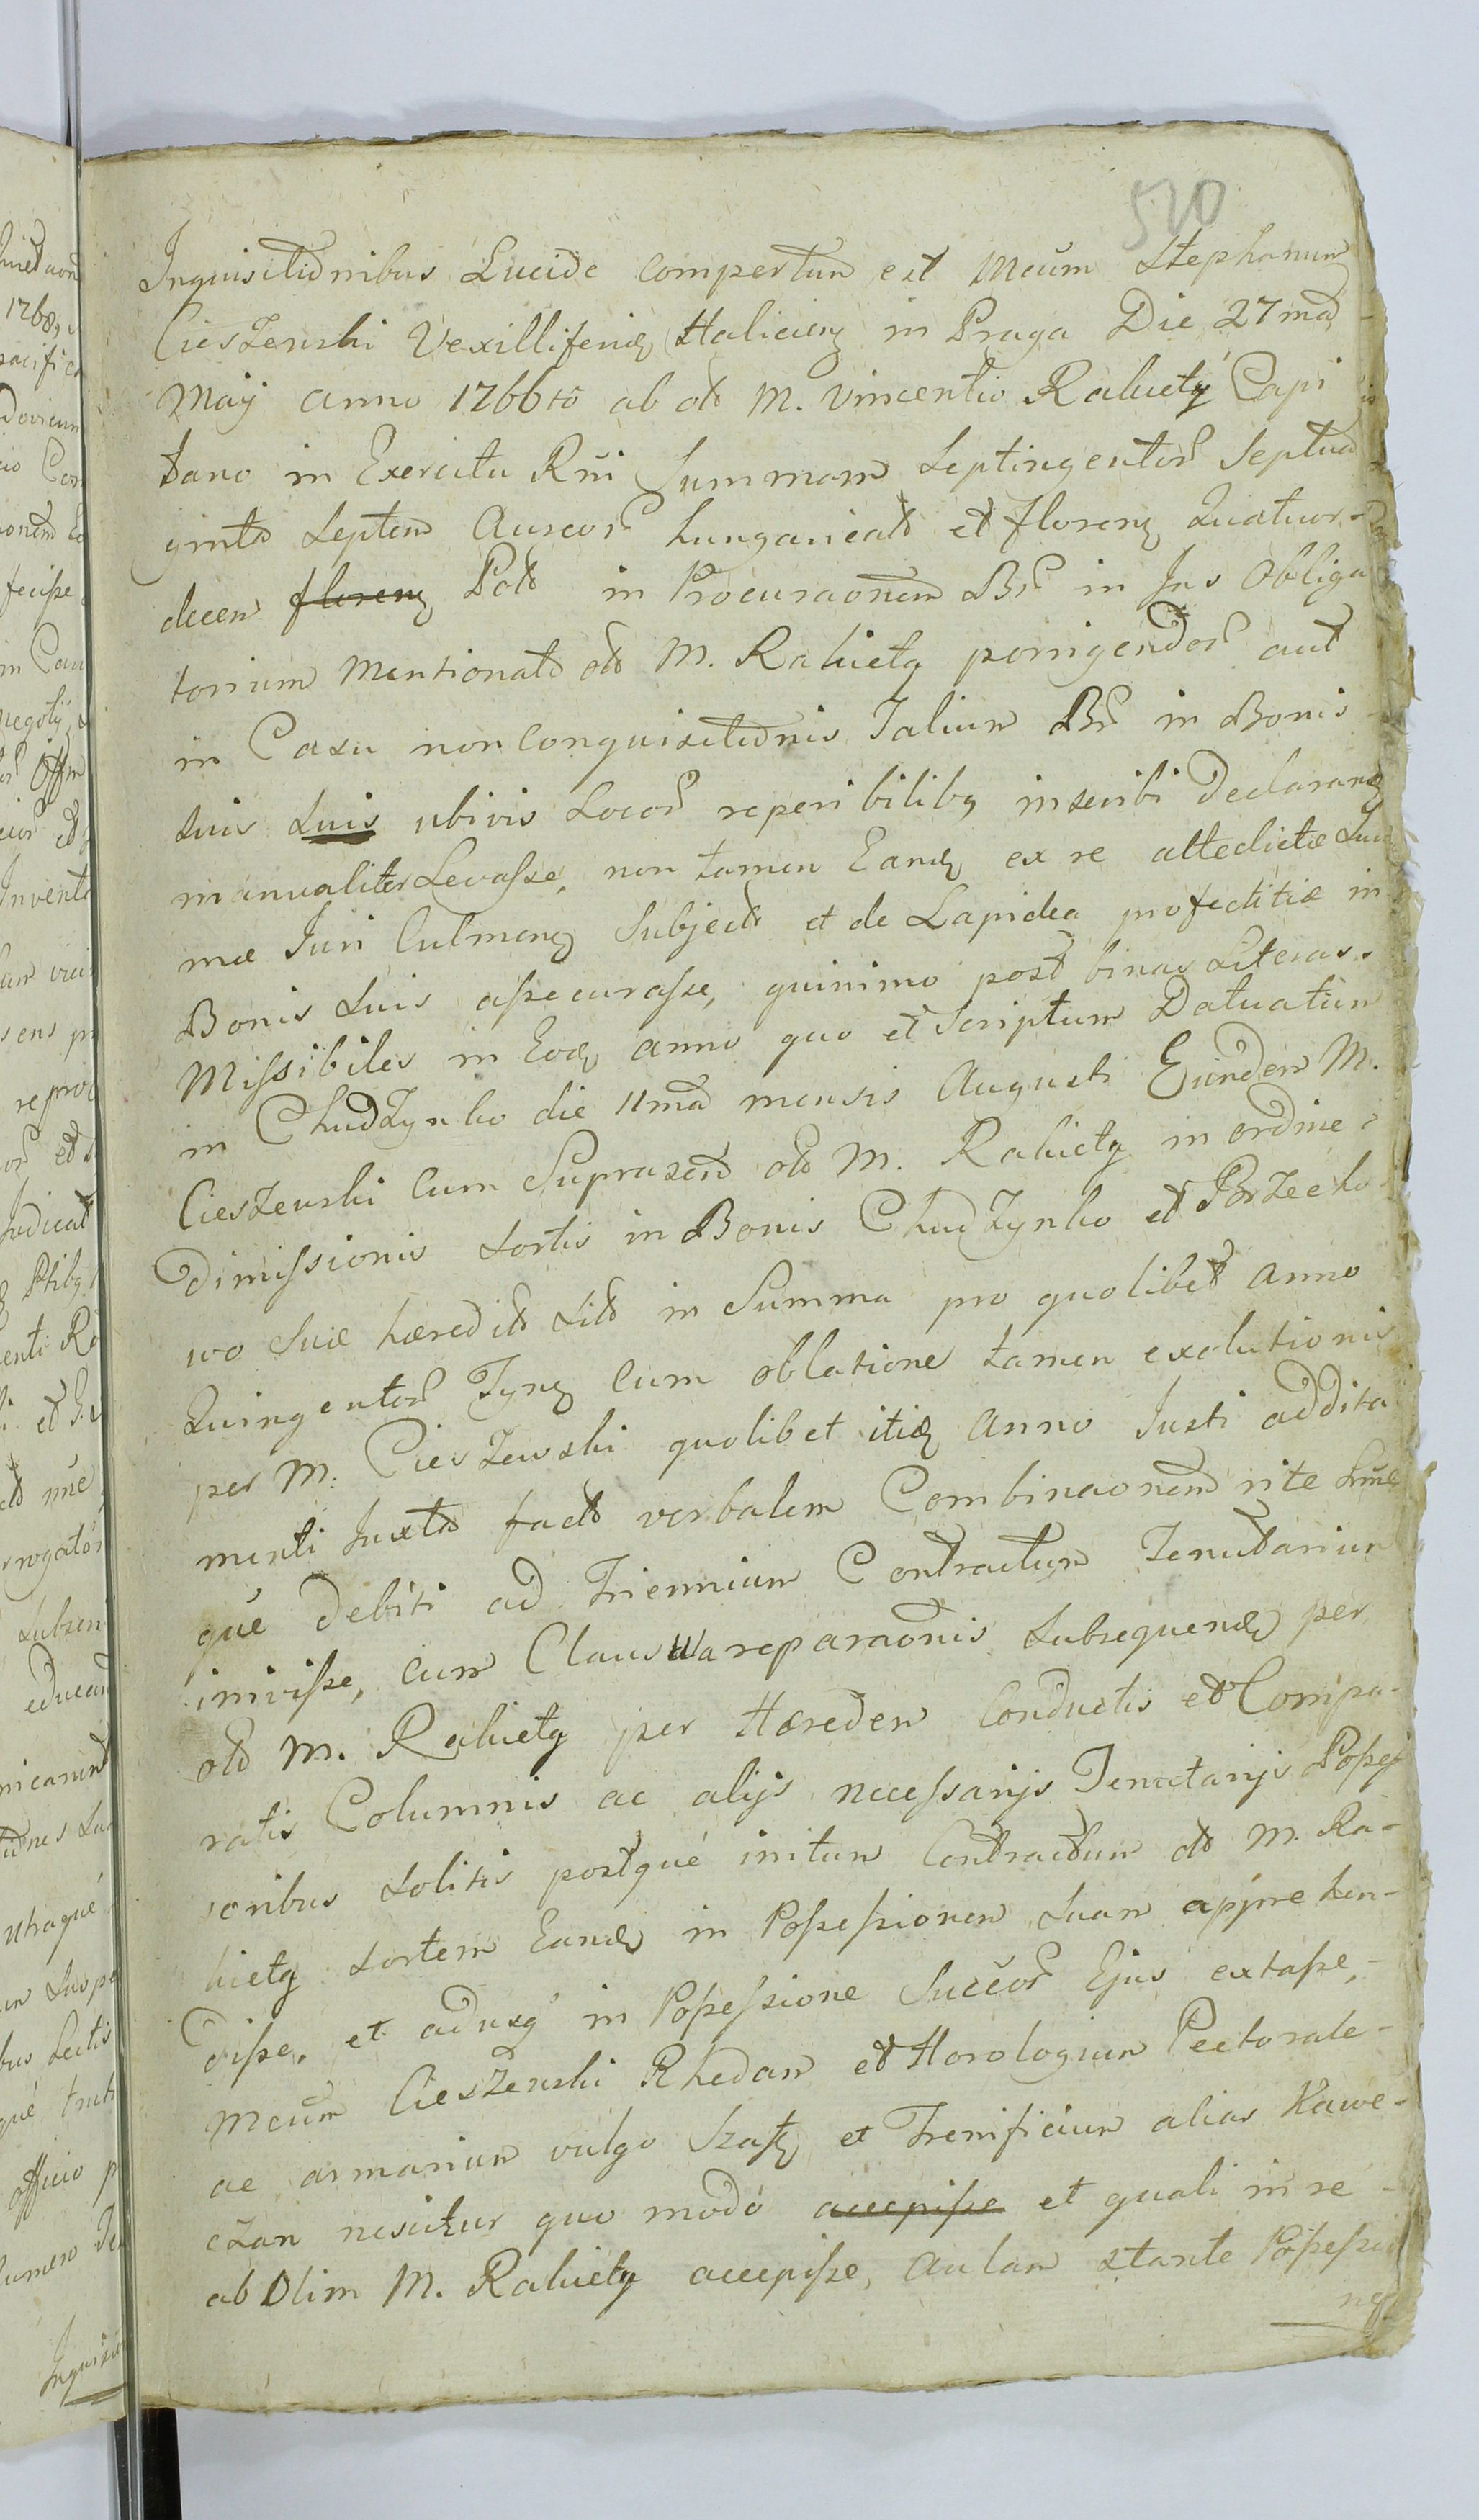 520
Inquisitionibus Lucide compertum est Mcum Stephanum
Cieszenski Vexilliferum Haliciens in Praga Die 27ma
Maÿ anno 1766to ab olt M. Vincentio Rabiety Capi
tano in Exercitu Rni Summam Septingentor Septua
ginta Septem Aureor hungaricalt et floren Quatuor-
decem floren Polt in Procuraonem Br in Jus Obliga
torium mentionato olt M. Rabiety porrigendor aut
in Casu non conquisitionis Talium Br in Bonis
suis suis ubivis Locor reperibilibq inscribi Declarans
manualiter Levasse, non tamen Eand ex re attedictæ Sum
mæ Juri Culmens Subject et de Lapidea profectitiæ in
Bonis Suis assecurasse, quinimo post binas Literas
Missibiles in Eod anno quo et Scriptum Datuatum
in Chudzynko die 11ma mensis Augusti Eundem M.
Cieszenski cum Suprascrip olt M. Rabiety in ordine
Dimissionis sortis in Bonis Chudzynko et Borzecho
wo Suæ hæredit Sit in Summa pro quolibet anno
Quingentor Tynf cum oblatione tamen exolutionis
per M. Cieszewski quolibet itid anno Justi addita
menti Juxta fact verbalem Combinaonem rite
que Debiti ad Triennium Contractum Tenutarium
inivisse, cum Clausula reparaonis Subsequend per
olt M. Rabiety per Hæredem Conductis et Compa-
ratis Columnis ac alijs necessarijs Tenutarijs Posses
soribus solitis postque initum Contractum olt M. Ra-
biety sortem Eand in Possessionem Suam apprehen-
disse, et adusq in Possessione Succor Ejus extasse,-
Mcum Cieszenski Rhedam et Horologium Pectorale-
ac armarium vulgo Szafę et Frenificium alias Kawe-
czan nescitur quo modo accepisse et quali in re-
ab Olim M. Rabiety accepisse, Aulam stante Possessio
ne